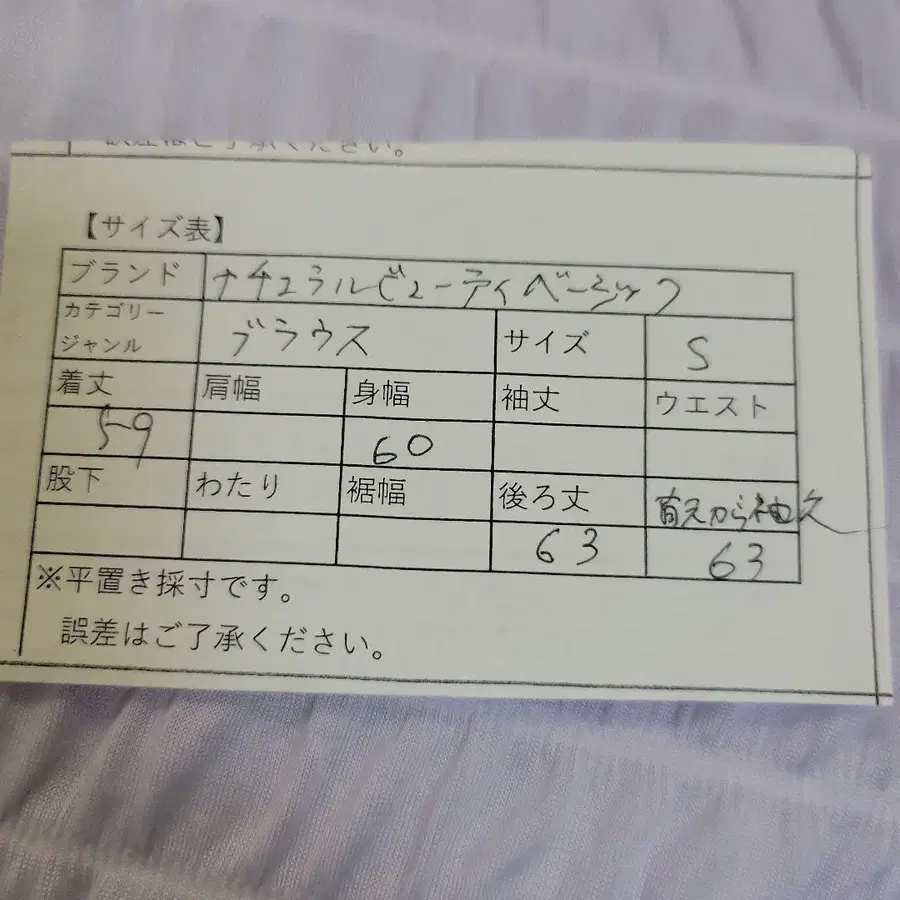 誤差はご了承ください。
【サイズ表】
ブランド ナチュラルビューティベーシック
カテゴリー
ジャンル ブラウス サイズ S
着丈 肩幅 身幅 袖丈 ウエスト
59 60
股下 わたり 裾幅 後ろ丈 首元から袖丈
63 63
※平置き採寸です。
誤差はご了承ください。